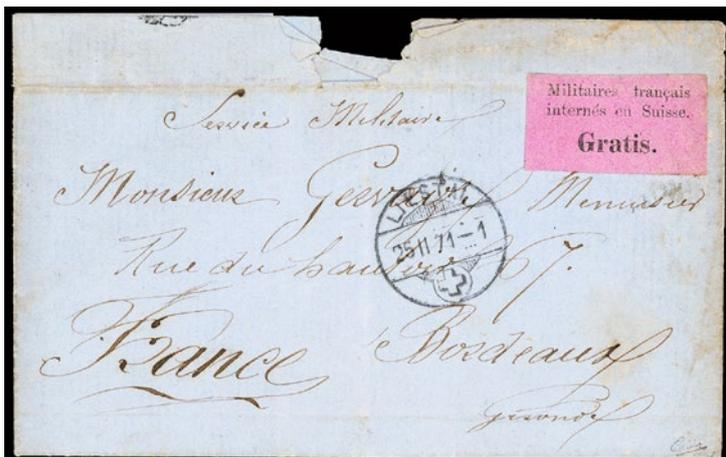 Militaires français
internés en Suisse.
Gratis.
Service Militaire
Monsieur Menuisier
LIESTAL
25 II 71 — 1
Rue du 67.
France Bordeaux
Gironde